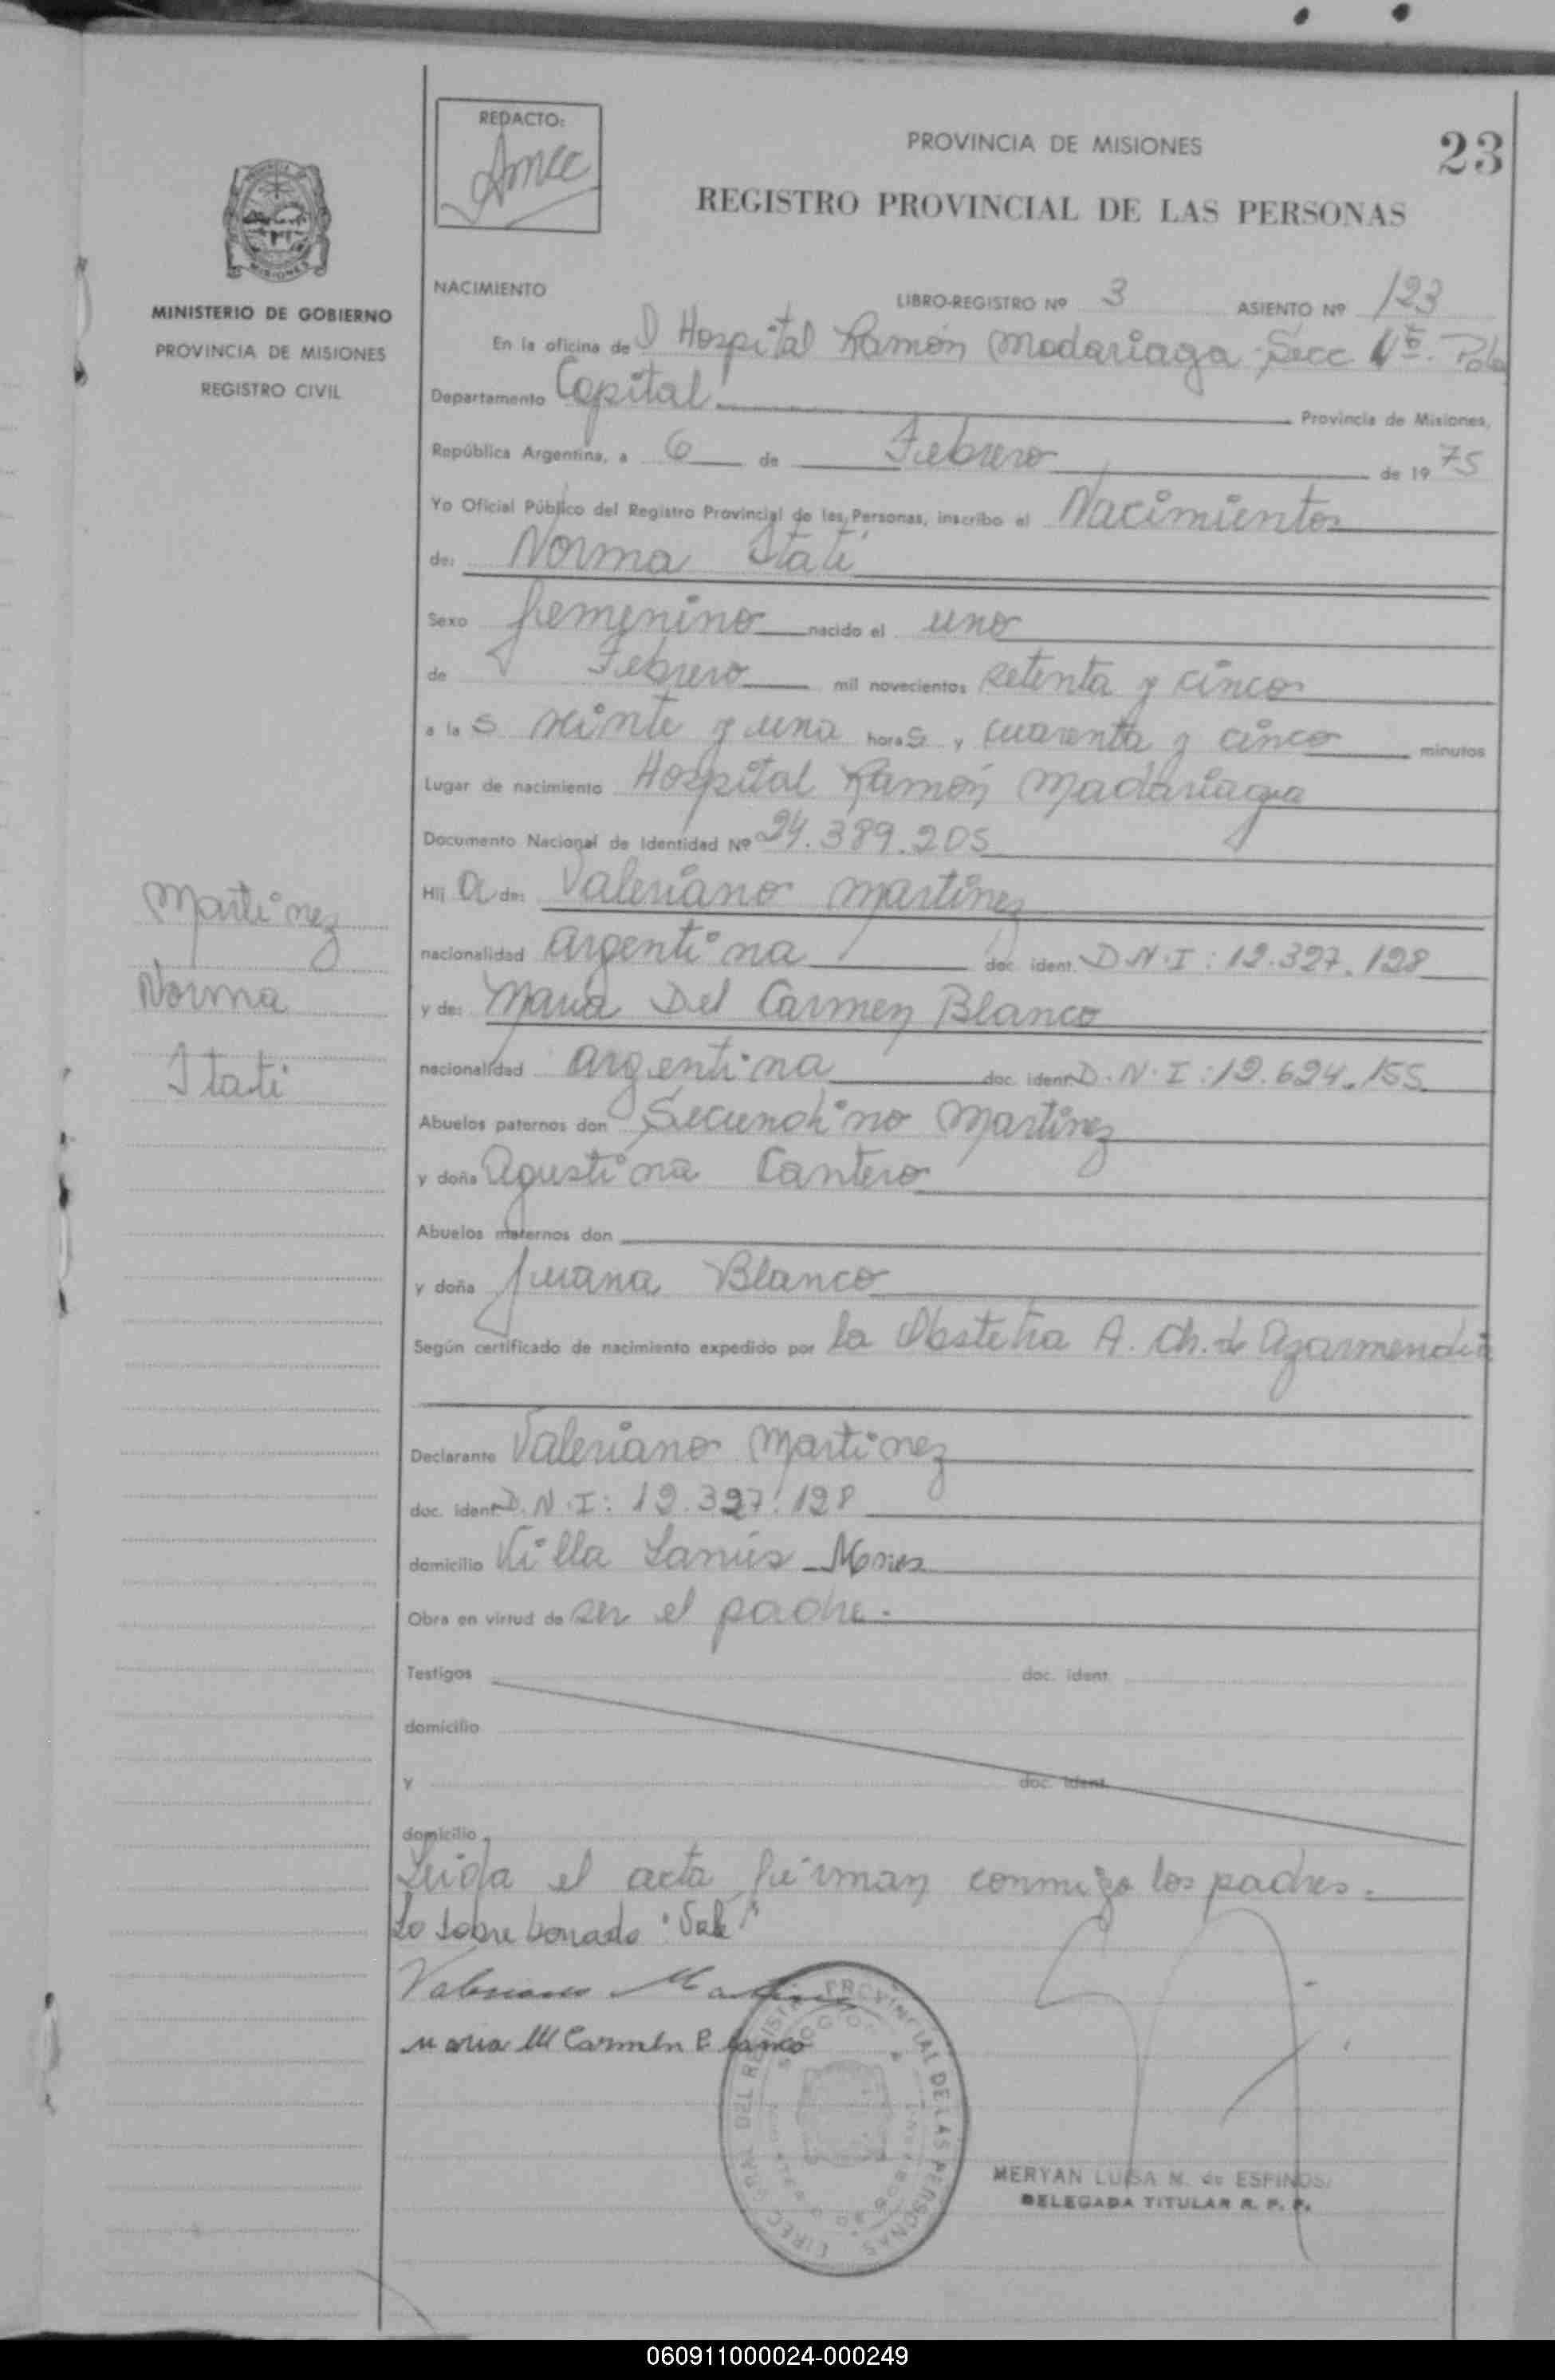 REDACTO:
PROVINCIA DE MISIONES
23
REGISTRO PROVINCIAL DE LAS PERSONAS
MISIONES
MINISTERIO DE GOBIERNO
PROVINCIA DE MISIONES
REGISTRO CIVIL
NACIMIENTO
LIBRO-REGISTRO Nº 3 ASIENTO Nº 123
En la oficina de D Hospital Ramón Madariaga Secc
Departamento Capital Provincia de Misiones,
República Argentina, a 6 de Febrero de 19 75
Yo Oficial Público del Registro Provincial de las Personas, inscribo el Nacimiento
de: Norma Itatí
Sexo femenino nacido el uno
de Febrero mil novecientos setenta y cinco
a la s veinte y una hora s y cuarenta y cinco minutos
Lugar de nacimiento Hospital Ramón Madariaga
Documento Nacional de Identidad Nº 24.389.205
Hij a de: Valeriano Martinez
nacionalidad argentina doc. ident. D.N.I: 12.327.128
y de: Maria Del Carmen Blanco
nacionalidad argentina doc. ident. D.N.I: 12.624.155
Abuelos paternos don Secundino Martinez
y doña Agustina Cantero
Abuelos maternos don
y doña Juana Blanco
Según certificado de nacimiento expedido por la Obstetra A. Ch. de Azarmendia
Declarante Valeriano Martinez
doc. ident. D.N.I: 12.327.128
domicilio Villa Lanús
Obra en virtud de ser el padre.
Testigos doc. ident.
domicilio
y doc. ident.
domicilio
Leida el acta firman conmigo los padres.
Lo sobre borrado "Vale"
Valeriano Martinez
Maria del Carmen Blanco
DIREC. GRAL. DEL REGISTRO PROVINCIAL DE LAS PERSONAS
MERYAN LUISA M. de ESPINOSA
DELEGADA TITULAR R. P. P.
Martinez
Norma
Itati
060911000024-000249